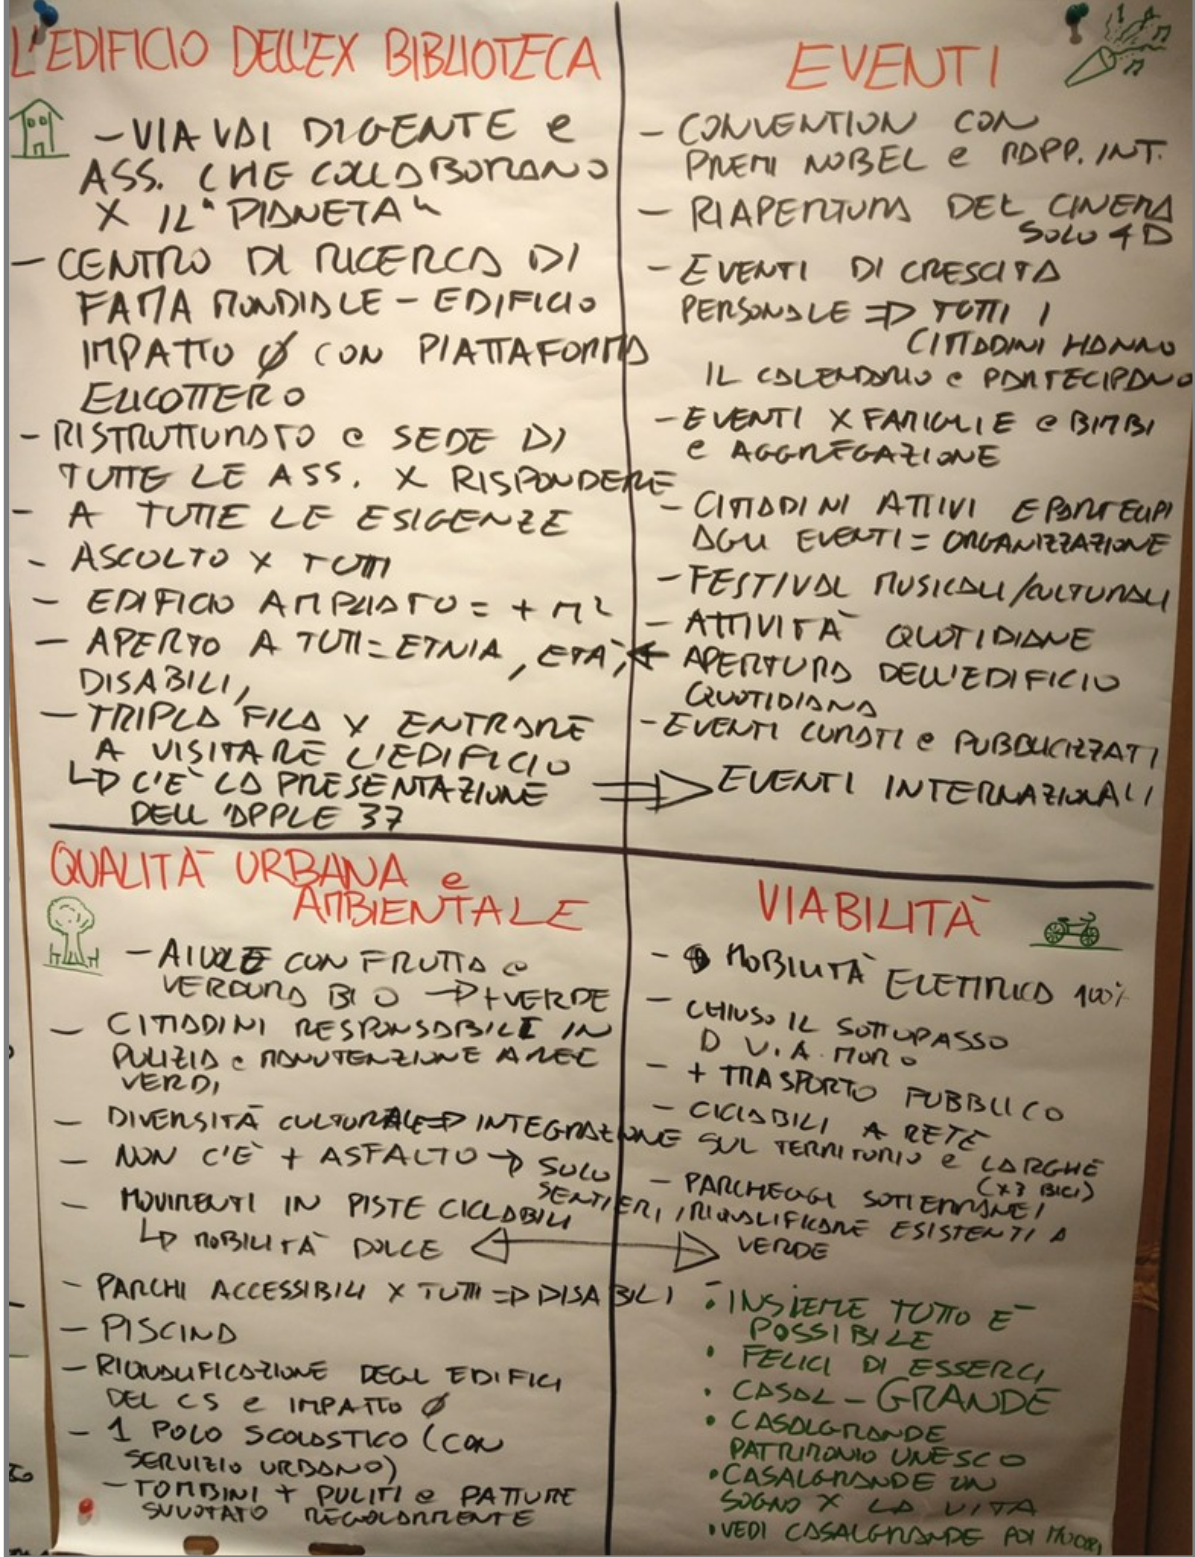 L'EDIFICIO DELL'EX BIBLIOTECA
- VIA VAI DI GENTE e
ASS. CHE COLLABORANO
X IL "PIANETA"
- CENTRO DI RICERCA DI
FAMA MONDIALE - EDIFICIO
IMPATTO Ø CON PIATTAFORMA
ELICOTTERO
- RISTRUTTURATO e SEDE DI
TUTTE LE ASS. X RISPONDERE
- A TUTTE LE ESIGENZE
- ASCOLTO X TUTTI
- EDIFICIO AMPLIATO = + M²
- APERTO A TUTTI = ETNIA, ETÀ,
DISABILI,
- TRIPLA FILA X ENTRARE
A VISITARE L'EDIFICIO
C'È LA PRESENTAZIONE
DELL'APPLE 37
EVENTI
- CONVENTION CON
PREMI NOBEL e RAPP. INT.
- RIAPERTURA DEL CINEMA
SOLO 4D
- EVENTI DI CRESCITA
PERSONALE => TUTTI I
CITTADINI HANNO
IL CALENDARIO e PARTECIPANO
- EVENTI X FAMIGLIE e BIMBI
e AGGREGAZIONE
- CITTADINI ATTIVI E PARTECIPI
AGLI EVENTI = ORGANIZZAZIONE
- FESTIVAL MUSICALI/CULTURALI
- ATTIVITÀ QUOTIDIANE
APERTURA DELL'EDIFICIO
QUOTIDIANA
- EVENTI CURATI e PUBBLICIZZATI
=> EVENTI INTERNAZIONALI
QUALITÀ URBANA e
AMBIENTALE
- AIUOLE CON FRUTTA e
VERDURA BIO -> + VERDE
- CITTADINI RESPONSABILI IN
PULIZIA e MANUTENZIONE AREE
VERDI,
- DIVERSITÀ CULTURALE => INTEGRAZIONE
- NON C'È + ASFALTO -> SOLO
SENTIERI
- MOVIMENTI IN PISTE CICLABILI
MOBILITÀ DOLCE
- PARCHI ACCESSIBILI X TUTTI => DISABILI
- PISCINA
- RIQUALIFICAZIONE DEGLI EDIFICI
DEL CS e IMPATTO Ø
- 1 POLO SCOLASTICO (CON
SERVIZIO URBANO)
- TOMBINI + PULITI e PATTUME
SVUOTATO REGOLARMENTE
VIABILITÀ
- MOBILITÀ ELETTRICA 100%
- CHIUSO IL SOTTOPASSO
D V. A. MORO
- + TRASPORTO PUBBLICO
- CICLABILI A RETE
SUL TERRITORIO e LARGHE
(X3 BICI)
- PARCHEGGI SOTTERRANEI
/RIQUALIFICARE ESISTENTI A
VERDE
• INSIEME TUTTO È
POSSIBILE
• FELICI DI ESSERCI
• CASAL - GRANDE
• CASALGRANDE
PATRIMONIO UNESCO
• CASALGRANDE UN
SOGNO X LA VITA
• VEDI CASALGRANDE POI MUORI